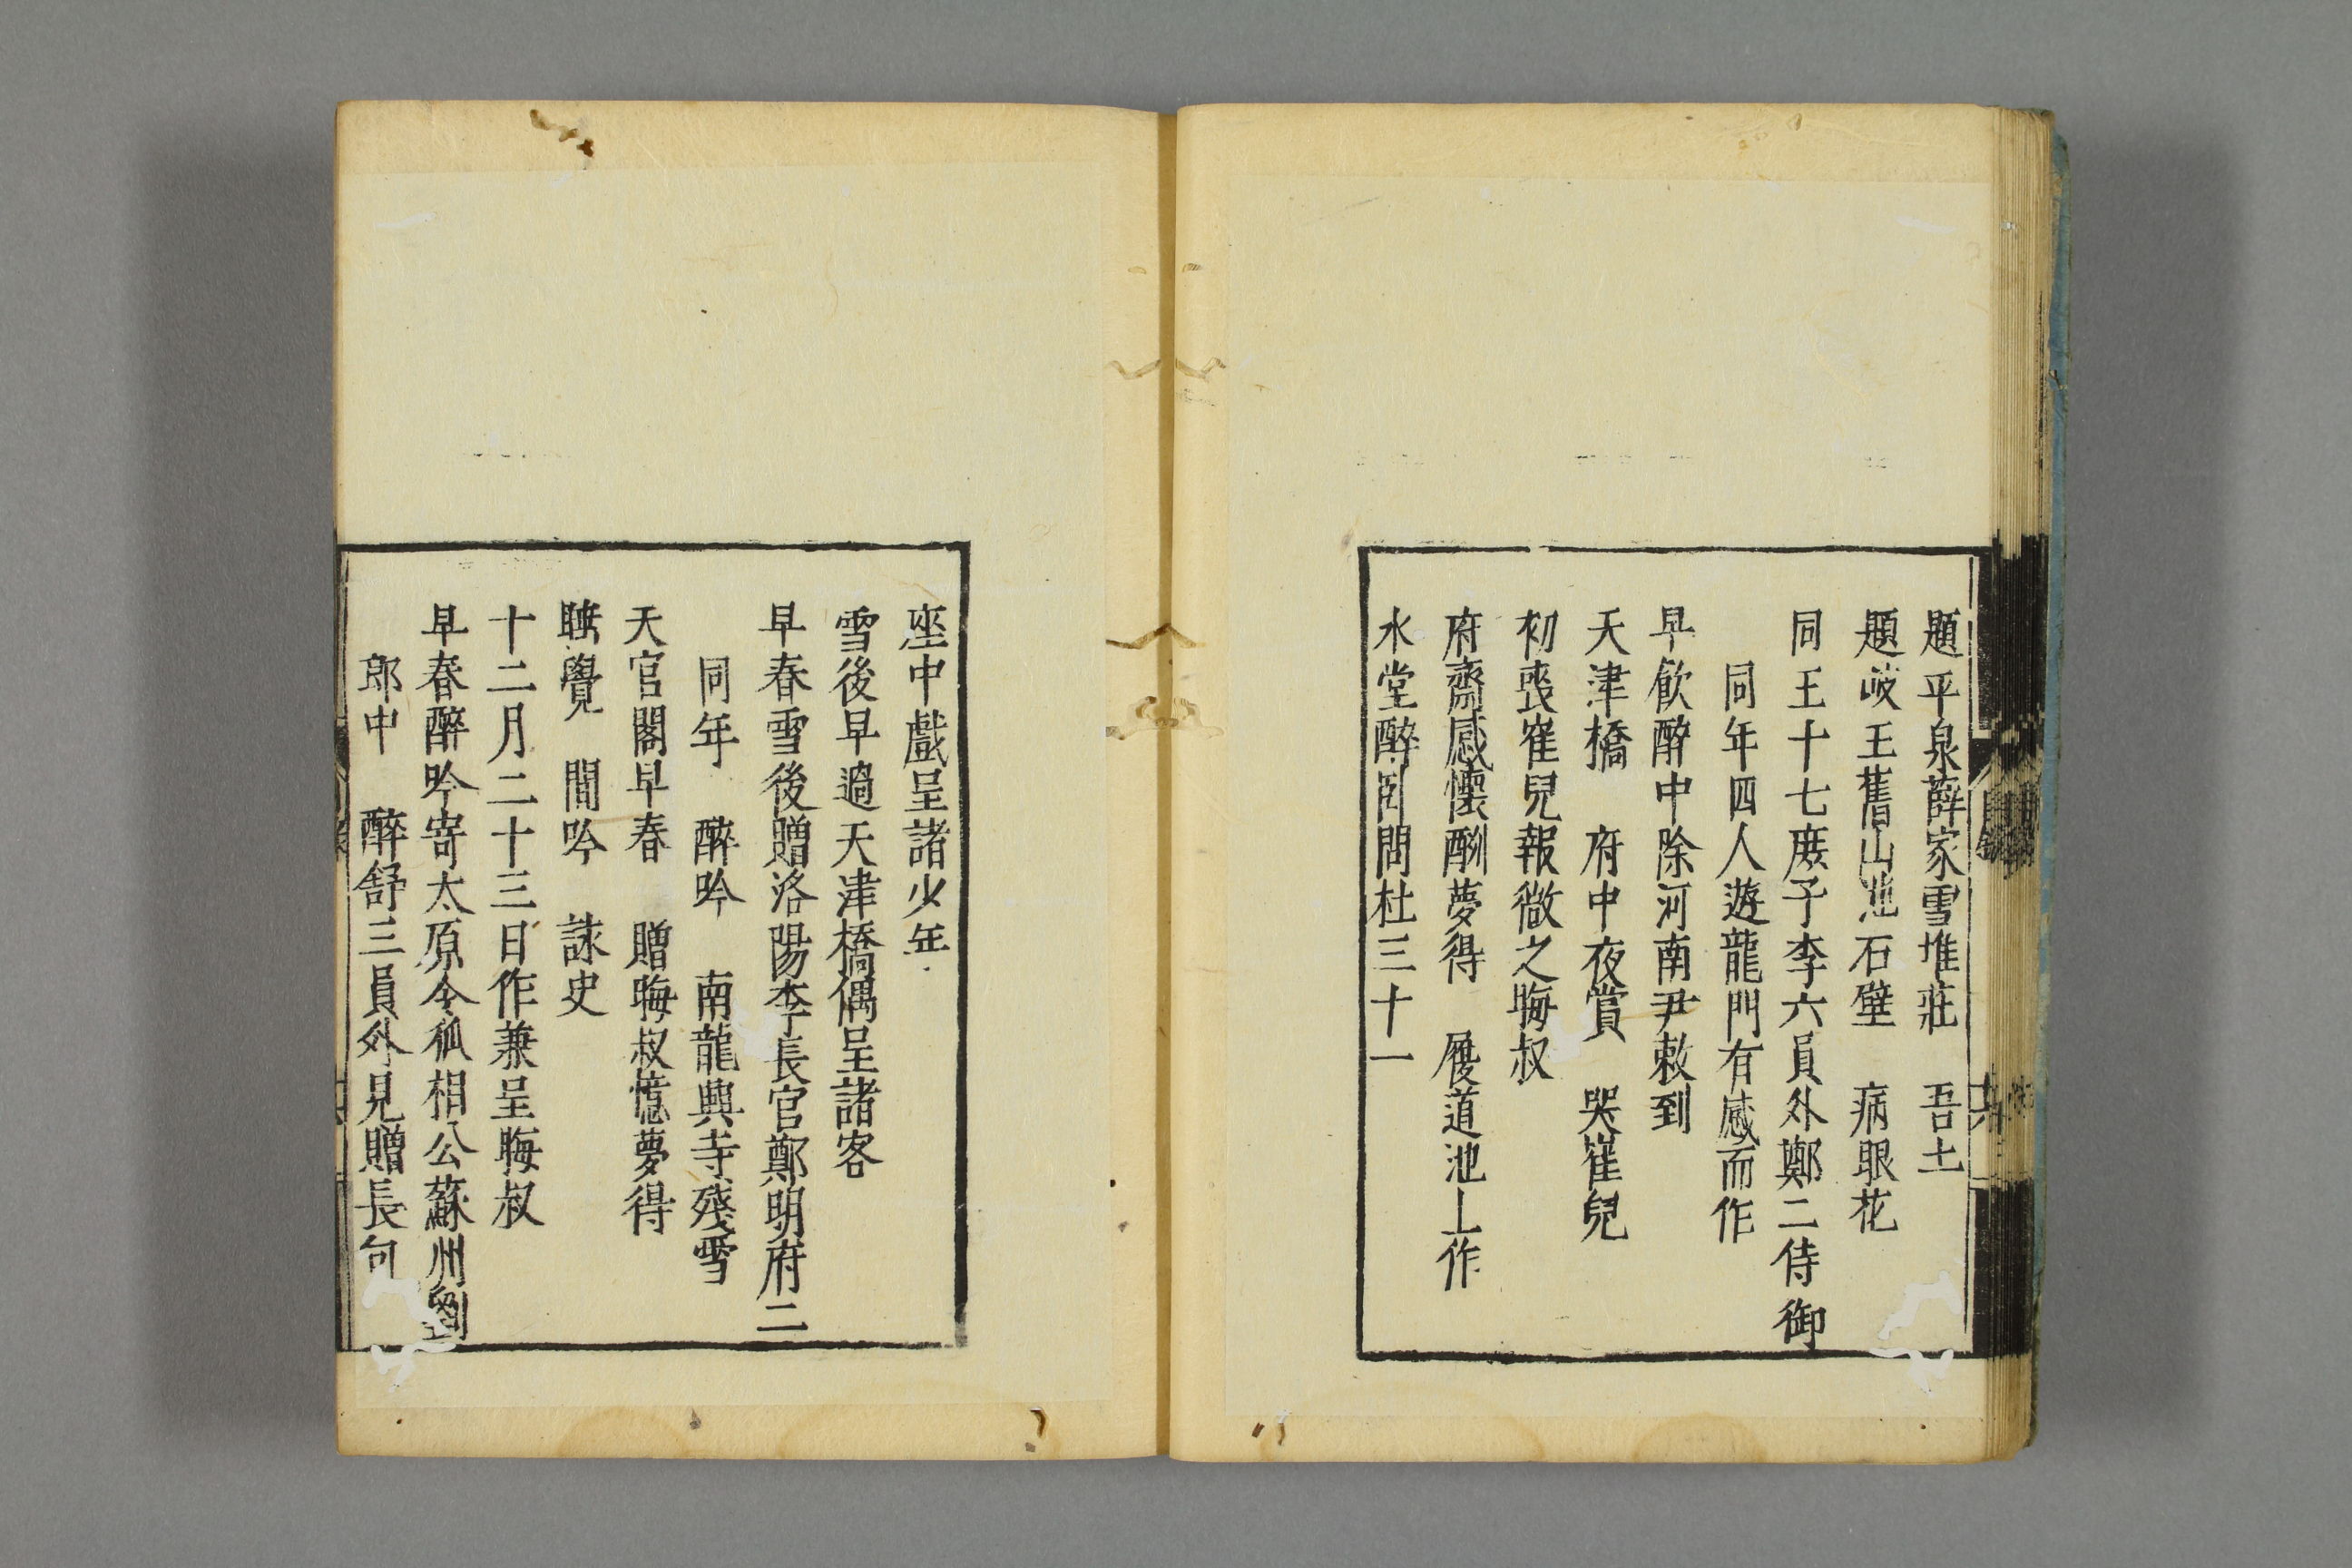 題平泉薛家雪堆莊　吾土
題岐王舊山池石壁　病眼花
同王十七庶子李六員外鄭二侍御
同年四人遊龍門有感而作
早飲醉中除河南尹敕到
天津橋　府中夜賞　哭崔兒
初喪崔兒報微之晦叔
府齋感懷酬夢得　履道池上作
水堂醉臥問杜三十一
座中戲呈諸少年
雪後早過天津橋偶呈諸客
早春雪後贈洛陽李長官鄭明府二
同年　醉吟　南龍興寺殘雪
天宮閣早春　贈晦叔憶夢得
睡覺　間吟　詠史
十二月二十三日作兼呈晦叔
早春醉吟寄太原令狐相公蘇州劉
郎中　醉舒三員外見贈長句